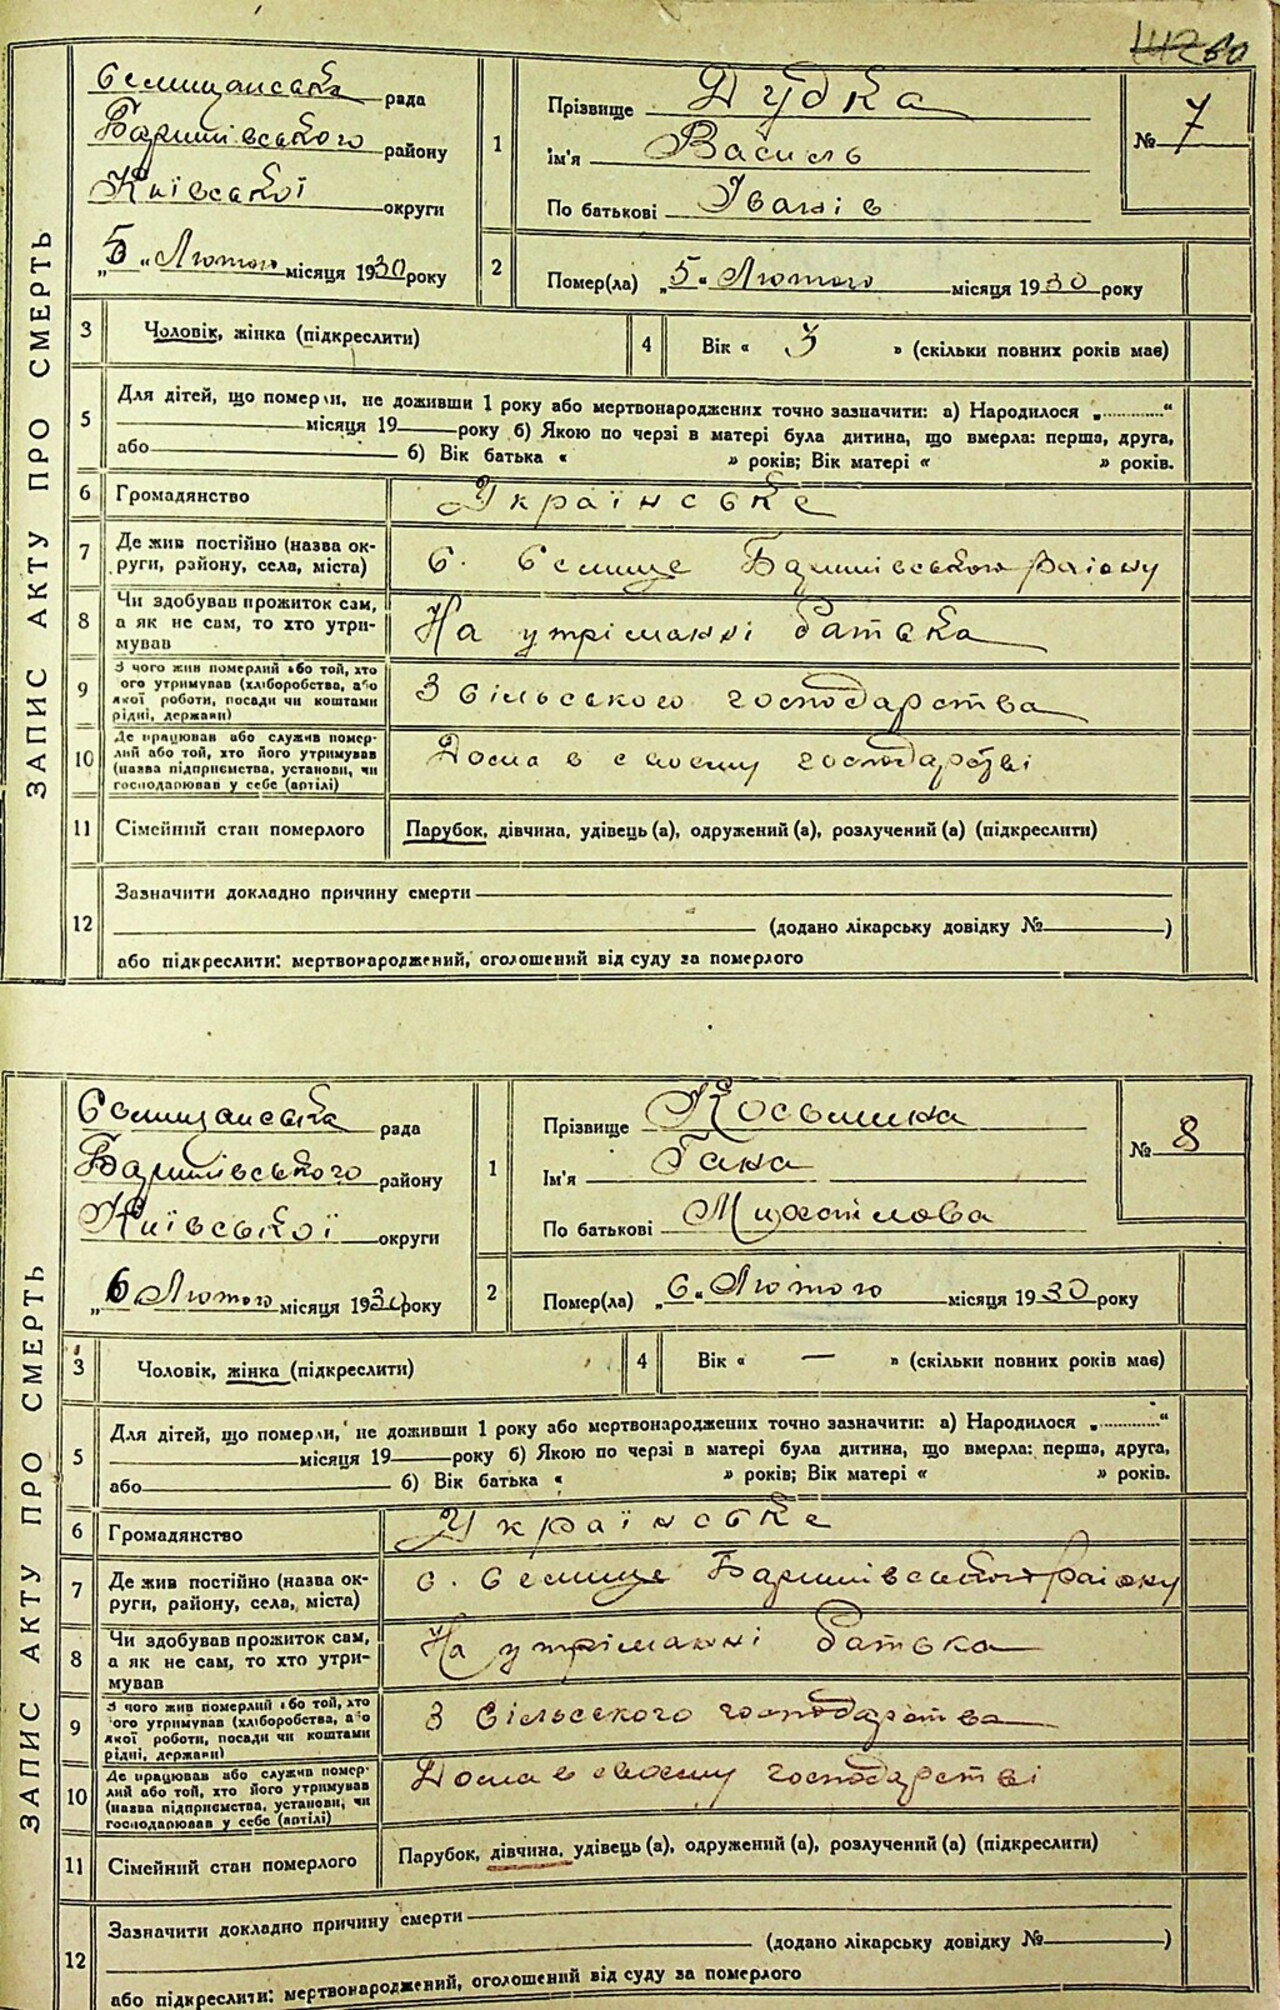 60
ЗАПИС АКТУ ПРО СМЕРТЬ
Селищанська рада
Баришівського району
Київської округи
„5“ Лютого місяця 1930 року
1
Прізвище Дудка
Ім'я Василь
По батькові Іванів
№ 7
2
Помер(ла) „5“ Лютого місяця 1930 року
3
Чоловік, жінка (підкреслити)
4
Вік « 3 » (скільки повних років має)
5
Для дітей, що померли, не доживши 1 року або мертвонароджених точно зазначити: а) Народилося „............“
місяця 19 року б) Якою по черзі в матері була дитина, що вмерла: перша, друга,
або б) Вік батька « » років; Вік матері « » років.
6
Громадянство
Українське
7
Де жив постійно (назва ок-
руги, району, села, міста)
С. Селище Баришівського району
8
Чи здобував прожиток сам,
а як не сам, то хто утри-
мував
На утріманні батька
9
З чого жив померлий або той, хто
ого утримував (хліборобства, або
якої роботи, посади чи коштами
рідні, держави)
З сільського господарства
10
Де працював або служив помер-
лий або той, хто його утримував
(назва підприємства, установи, чи
господарював у себе (артілі)
Дома в своєму господарстві
11
Сімейний стан померлого
Парубок, дівчина, удівець (а), одружений (а), розлучений (а) (підкреслити)
12
Зазначити докладно причину смерти
(додано лікарську довідку № )
або підкреслити: мертвонароджений, оголошений від суду за померлого
ЗАПИС АКТУ ПРО СМЕРТЬ
Селищанська рада
Баришівського району
Київської округи
„6 Лютого місяця 1930 року
1
Прізвище Косьмина
Ім'я Гана
По батькові Михайлова
№ 8
2
Помер(ла) „6“ Лютого місяця 1930 року
3
Чоловік, жінка (підкреслити)
4
Вік « — » (скільки повних років має)
5
Для дітей, що померли, не доживши 1 року або мертвонароджених точно зазначити: а) Народилося „............“
місяця 19 року б) Якою по черзі в матері була дитина, що вмерла: перша, друга,
або б) Вік батька « » років; Вік матері « » років.
6
Громадянство
Українське
7
Де жив постійно (назва ок-
руги, району, села, міста)
с. Селище Баришівського району
8
Чи здобував прожиток сам,
а як не сам, то хто утри-
мував
На утріманні батька
9
З чого жив померлий або той, хто
ого утримував (хліборобства, або
якої роботи, посади чи коштами
рідні, держави)
З сільського господарства
10
Де працював або служив помер-
лий або той, хто його утримував
(назва підприємства, установи, чи
господарював у себе (артілі)
Дома в своєму господарстві
11
Сімейний стан померлого
Парубок, дівчина, удівець (а), одружений (а), розлучений (а) (підкреслити)
12
Зазначити докладно причину смерти
(додано лікарську довідку № )
або підкреслити: мертвонароджений, оголошений від суду за померлого